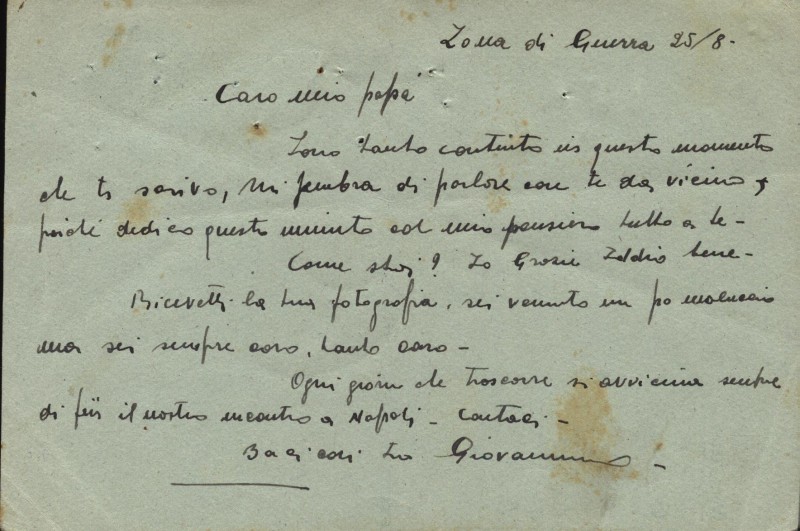 Zona di Guerra 25/8-
Caro mio papà
Sono tanto contento in questo momento
che ti scrivo, mi sembra di parlare con te da vicino,
poiché dedico questo minuto col mio pensiero tutto a te-
Come stai? Io Grazie Iddio bene-
Ricevetti la tua fotografia, sei venuto un po maluccio
ma sei sempre caro, tanto caro-
Ogni giorno che trascorre si avvicina sempre
di più il nostro incontro a Napoli-
Baci cari tuo Giovannino-